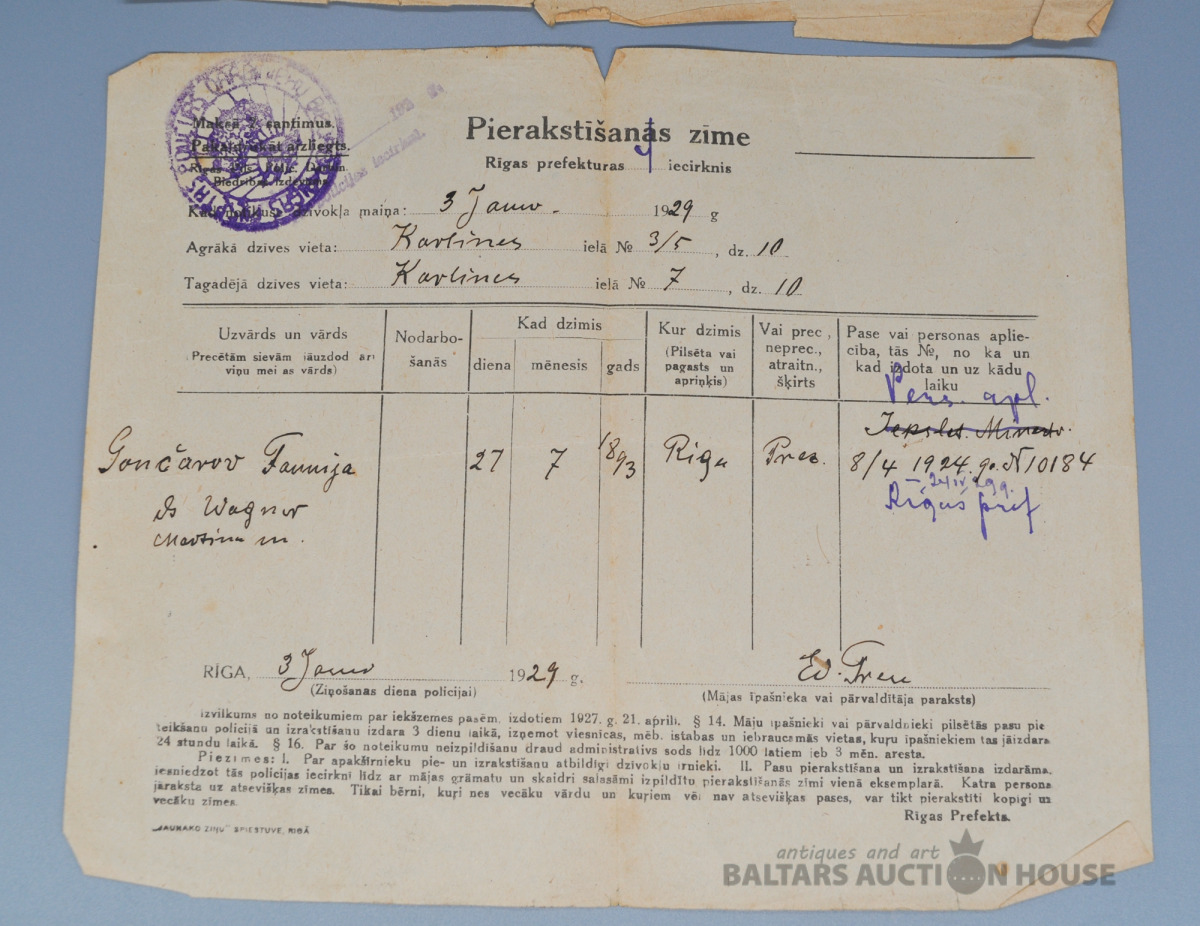 Maksā 2 santimus.
Pakaļdrukāt aizliegts.
Pierakstīšanās zīme
Rīgas prefekturas 4 iecirknis
dzīvokļa maiņa: 3 Janv. 1929 g
Agrākā dzīves vieta: Karlines ielā № 3/5, dz. 10
Tagadējā dzīves vieta: Karlines ielā № 7, dz. 10
Uzvārds un vārds
(Precētām sievām jāuzdod arī
viņu mei as vārds)
Nodarbo-
šanās
Kad dzimis
diena
mēnesis
gads
Kur dzimis
(Pilsēta vai
pagasts un
apriņķis)
Vai prec.,
neprec.,
atraitn.,
šķirts
Pase vai personas aplie-
cība, tās №, no ka un
kad izdota un uz kādu
laiku
Pers. apl.
Gončarov 27 7 1893 Riga Prec. 8/4 1924 g. N 10184
Rīgas pref
dz Wagner
m.
RĪGA, 3 Janv 1929 g.
(Ziņošanas diena policijai)
(Mājas īpašnieka vai pārvaldītāja paraksts)
Izvilkums no noteikumiem par iekšzemes pasēm, izdotiem 1927. g. 21. aprīlī. § 14. Māju īpašnieki vai pārvaldnieki pilsētās pasu pie
teikšanu policijā un izrakstīšanu izdara 3 dienu laikā, izņemot viesnīcas, mēb. istabas un iebraucamās vietas, kuŗu īpašniekiem tas jāizdara
24 stundu laikā. § 16. Par šo noteikumu neizpildīšanu draud administratīvs sods līdz 1000 latiem ieb 3 mēn. aresta.
Piezīmes: I. Par apakšīrnieku pie- un izrakstīšanu atbildīgi dzīvokļu īrnieki. II. Pasu pierakstīšana un izrakstīšana izdarāma,
iesniedzot tās policijas iecirknī līdz ar mājas grāmatu un skaidri salasāmi izpildītu pierakstīšanās zīmi vienā eksemplarā. Katra persona
jāraksta uz atsevišķas zīmes. Tikai bērni, kuŗi nes vecāku vārdu un kuŗiem vēl nav atsevišķas pases, var tikt pierakstīti kopīgi uz
vecāku zīmes.
Rīgas Prefekts.
„JAUNĀKO ZIŅU" SPIESTUVE, RĪGĀ
antiques and art
BALTARS AUCTION HOUSE